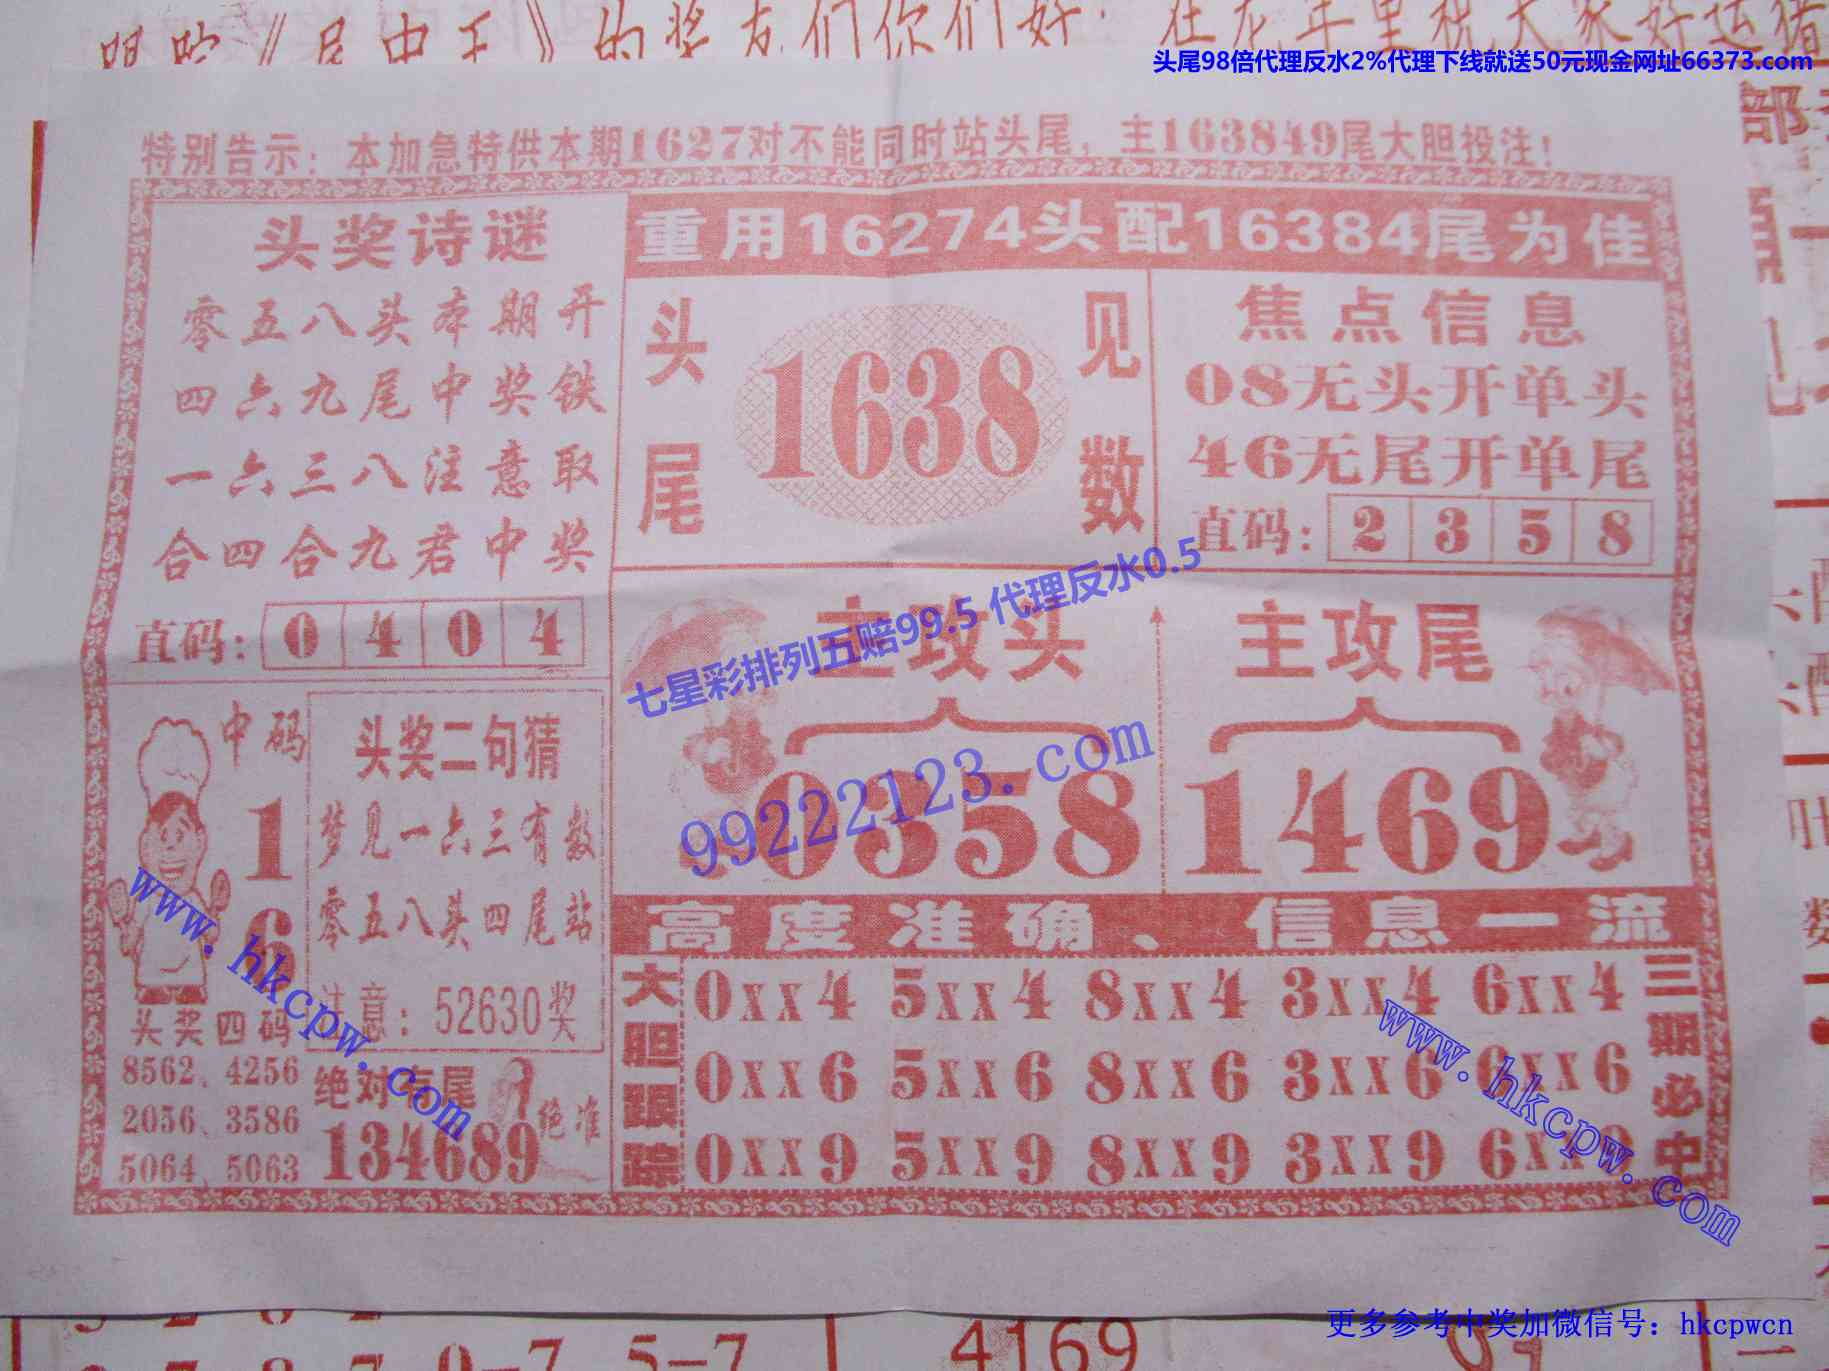 明贮《尾中王》的奖友们你们好：在龙年里祝大家好运猪
头尾98倍代理反水2%代理下线就送50元现金网址66373.com
特别告示：本加急特供本期1627对不能同时站头尾，主163849尾大胆投注！
头奖诗谜
零五八头本期开
四六九尾中奖铁
一六三八注意取
合四合九君中奖
直码：0 4 0 4
重用16274头配16384尾为佳
头尾
1638
见数
焦点信息
08无头开单头
46无尾开单尾
直码：2 3 5 8
七星彩排列五赔99.5 代理反水0.5
99222123.com
主攻头
0358
主攻尾
1469
中码
1
6
头奖二句猜
梦见一六三有数
零五八头四尾站
注意：52630奖
头奖四码
8562、4256
2056、3586
5064、5063
绝对有尾
134689
绝准
高度准确、信息一流
大胆跟踪
0xx4 5xx4 8xx4 3xx4 6xx4
0xx6 5xx6 8xx6 3xx6 6xx6
0xx9 5xx9 8xx9 3xx9 6xx9
三期必中
www.hkcpw.com
www.hkcpw.com
更多参考中奖加微信号：hkcpwcn
5-7
4169